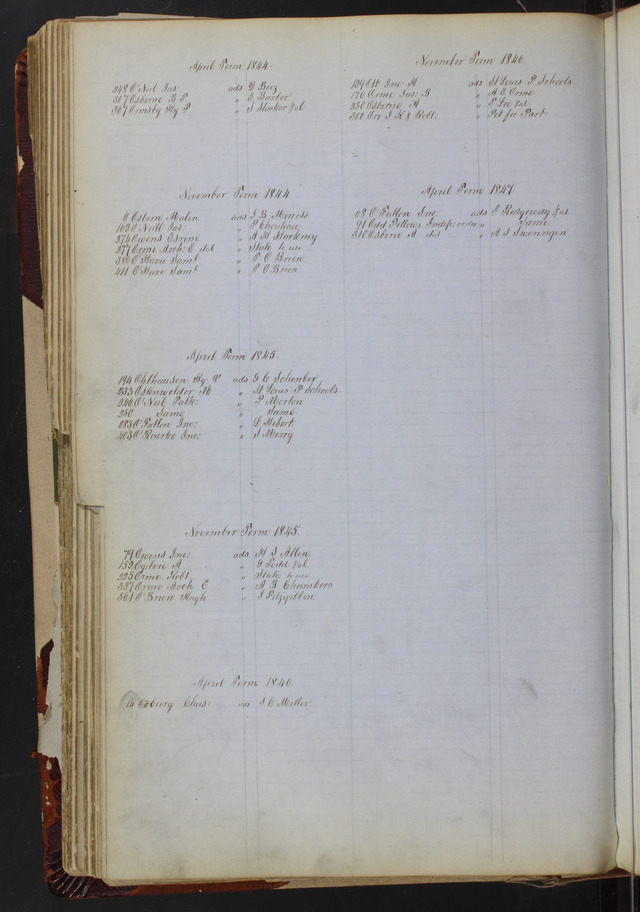 April Term 1844.
248 O'Neil Jas: ads G Berg
307 Osborne B P " C Barber
307 Ormsby Hy P " J Hooker &al
November Term 1844
6 Osborn Malen ads J B Morriss
162 O'Neill Jas: " P Chouteau
374 Owens Esrom " A H Stockney
377 Orme Arch: E etal " State to use
380 O'Hare Saml " P O'Brien
411 O'Hare Saml " P O'Brien
April Term 1845.
194 Ohlhausen Hy. V ads G C Schonber
233 Ostenwelder M " St Louis P Schools
246 O'Neil Patk: " P Morton
250 Same " Same
283 O'Fallon Jno: " L Hebert
403 O'Rourke Jno: " J Merry
November Term 1845.
79 Owens Jno: ads H J Allen
152 Ogden A " G Todd &al
225 Orme Robt " State to use
327 Orme Arch E " A B Chambers
361 O'Brien Hugh " J Fitzgibbon
April Term 1846
14 Osburg Chas: ads J C Miller
November Term 1846
129 Ott Jno: H ads St Louis P Schools
176 Orme Jas: B " A E Orme
230 Osborne A " P Lee &al
300 Orr J K & Robt: " Pet for Part:
April Term 1847
68 O'Fallon Jno ads J Ridgeway &al
91 Odd Fellows Indep: order " Same
316 Osborn A etal " A J Sweringen